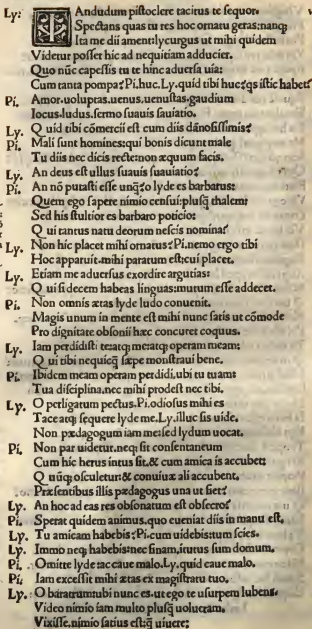 Ly: Iandudum pistoclere tacitus te sequor.
Spectans quas tu res hoc ornatu geras: nanq;
Ita me dii ament: lycurgus ut mihi quidem
Videtur posser hic ad nequitiam adducier.
Quo nūc capessis tu te hinc aduersa uia:
Cum tanta pompa? Pi. huc. Ly. quid tibi huc? qs istic habet?
Pi. Amor. uoluptas. uenus. uenustas. gaudium
Iocus. ludus. sermo suauis sauiatio.
Ly. Quid tibi cōmercii est cum diis dānosissimis?
Pi. Mali sunt homines: qui bonis dicunt male
Tu diis nec dicis recte: non æquum facis.
Ly. An deus est ullus suauis sauiatio?
Pi. An nō putasti esse unq̄? o lyde es barbatus:
Quem ego sapere nimio censui: plusq̄ thalem:
Sed his stultior es barbaro poticio:
Qui tantus natu deorum nescis nomina?
Ly. Non hic placet mihi ornatus? Pi. nemo ergo tibi
Hoc apparuit. mihi paratum est: cui placet.
Ly. Etiam me aduersus exordire argutias:
Qui si decem habeas linguas: mutum esse addecet.
Pi. Non omnis ætas lyde ludo conuenit.
Magis unum in mente est mihi nunc satis ut cōmode
Pro dignitate obsonii hæc concuret coquus.
Ly. Iam perdidisti: teatq; meatq; operam meam:
Qui tibi nequicq̄ sæpe monstraui bene.
Pi. Ibidem meam operam perdidi. ubi tu tuam:
Tua disciplina. nec mihi prodest nec tibi.
Ly. O perligatum pectus. Pi. odiosus mihi es
Tace atq; sequere lyde me. Ly. illuc sis uide.
Non pædagogum iam me: sed lydum uocat.
Pi. Non par uidetur. neq; sit consentaneum
Cum hic herus intus sit. & cum amica is accubet:
Quūq; osculetur: & conuiuæ ali accubent.
Præsentibus illis pædagogus una ut siet?
Ly. An hoc ad eas res obsonatum est obsecro?
Pi. Sperat quidem animus. quo eueniat diis in manu est.
Ly. Tu amicam habebis: Pi. cum uidebis: tum scies.
Ly. Immo neq; habebis: nec sinam. iturus sum domum.
Pi. Omitte lyde tac caue malo. Ly. quid caue malo.
Pi. Iam excessit mihi ætas ex magistratu tuo.
Ly. O baratrum: ubi nunc es. ut ego te usurpem lubens.
Video nimio iam multo plusq̄ uolueram.
Vixisse. nimio satius est: q̄ uiuere: